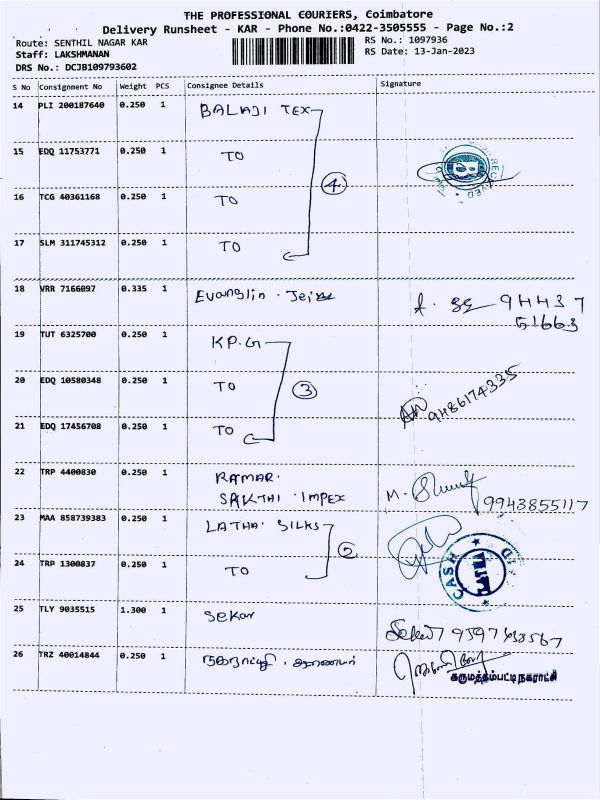 THE PROFESSIONAL COURIERS, Coimbatore
Delivery Runsheet - KAR - Phone No.:0422-3505555 - Page No.:2
Route: SENTHIL NAGAR KAR
RS No.: 1097936
Staff: LAKSHMANAN
RS Date: 13-Jan-2023
DRS No.: DCJB109793602
S No Consignment No Weight PCS Consignee Details Signature
14 PLI 200187640 0.250 1 BALAJI TEX
15 EDQ 11753771 0.250 1 TO
4
RECEIVED
16 TCG 40361168 0.250 1 TO
17 SLM 311745312 0.250 1 TO
18 VRR 7166097 0.335 1 Evanglin. 94437
51663
19 TUT 6325700 0.250 1 KP.G
20 EDQ 10580348 0.250 1 TO 3 9486174335
21 EDQ 17456708 0.250 1 TO
22 TRP 4400830 0.250 1 RAMAR.
SAKTHI IMPEX M. 9943855117
23 MAA 858739383 0.250 1 LATHA. SILKS
2
24 TRP 1300837 0.250 1 TO CASH
25 TLY 9035515 1.300 1 Sekar
26 TRZ 40014844 0.250 1
கருமத்தம்பட்டி நகராட்சி